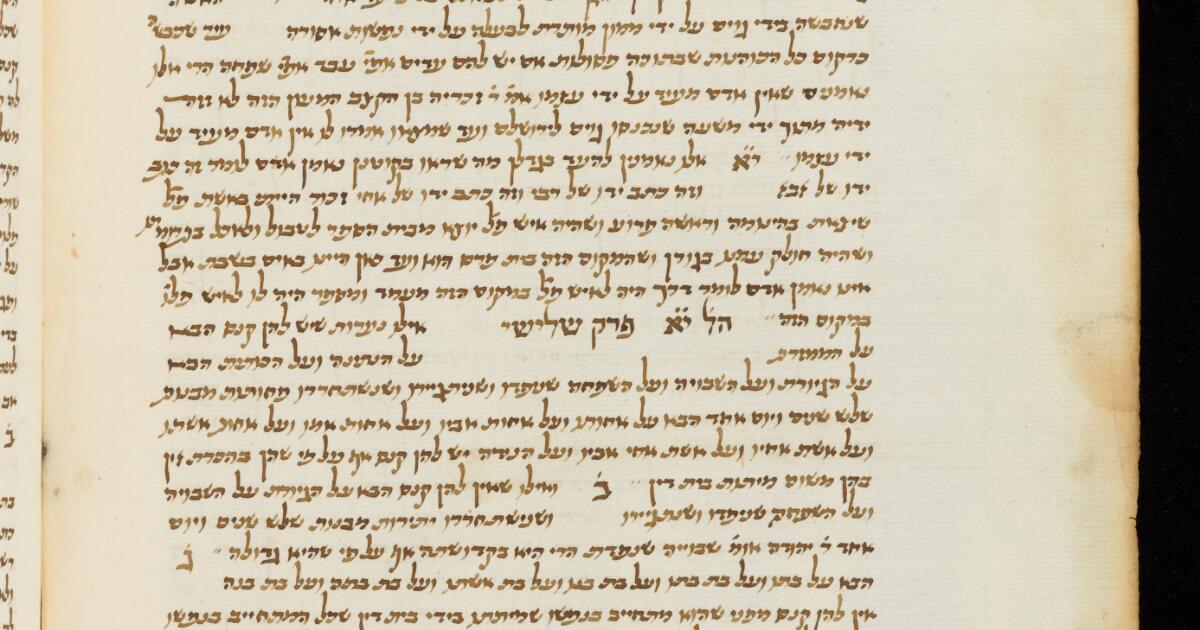 שנחבשה בידי גוים על ידי ממון מותרת לבעלה על ידי נפשות אסורה עיר שכבש׳
כרקום כל הכוהנות שבתוכה פסולות אם יש להם עדים אפי׳ עבד אפי׳ שפחה הרי אלו
נאמנים שאין אדם מעיד על ידי עצמו אמ׳ ר׳ זכריה בן הקצב המעון הזה לא זזה
ידיה מתוך ידי משעה שנכנסו גוים לירושלם ועד שיצאו אמרו לו אין אדם מעיד על
ידי עצמו י״א אלו נאמנין להעיד בגודלן מה שראו בקוטנן נאמן אדם לומר זה כתב
ידו של אבא וזה כתב ידו של רבי וזה כתב ידו של אחי זכור הייתי באשת פל׳
שיצאת בהינומה וראשה פרוע ושהיה איש פל׳ יוצא מבית הספר לטבול ולאכל בתרומ׳
ושהיה חולק עמנו בגורן ושהמקום הזה בית פרס הוא ועד כאן היינו באים בשבת אבל
אינו נאמן אדם לומר דרך היה לאיש פל׳ במקום הזה מעמד ומספד היה לו לאיש פלו׳
במקום הזה הל׳ י״א פרק שלישי אילו נערות שיש להן קנס הבא
על הממזרת על הנתינה ועל הכותית הבא
על הגיורת ועל השבויה ועל השפחה שנפדו ושנתגיירו ושנשתחררו פחותות מבנות
שלש שנים ויום אחד הבא על אחותו ועל אחות אביו ועל אחות אמו ועל אחות אשתו
ועל אשת אחיו ועל אשת אחי אביו ועל הנדה יש להן קנס אף על פי שהן בהכרת אין
בהן משום מיתות בית דין ב׳ ואילו שאין להן קנס הבא על הגיורת על השבויה
ועל השפחה שנפדו ושנתגיירו ושנשתחררו יתירות מבנות שלש שנים ויום
אחד ר׳ יהודה אומ׳ שבוייה שנפדת הרי היא בקדושתה אף על פי שהיא גדולה ג׳
הבא על בתו ועל בת בתו ועל בת בנו ועל בת אשתו ועל בת בתה ועל בת בנה
אין להן קנס מפני שהוא מתחייב בנפשו שמיתתו בידי בית דין שכל המתחייב בנפשו